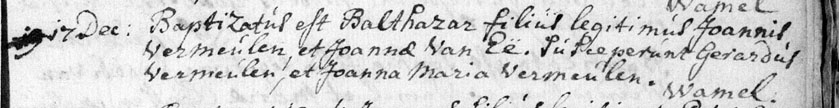 Wamel
17 Dec: Baptizatus est Balthazar filius legitimus Joannis
Vermeulen, et Joannæ Van Eë. Susceperunt Gerardus
Vermeulen, et Joanna Maria Vermeulen.
Wamel